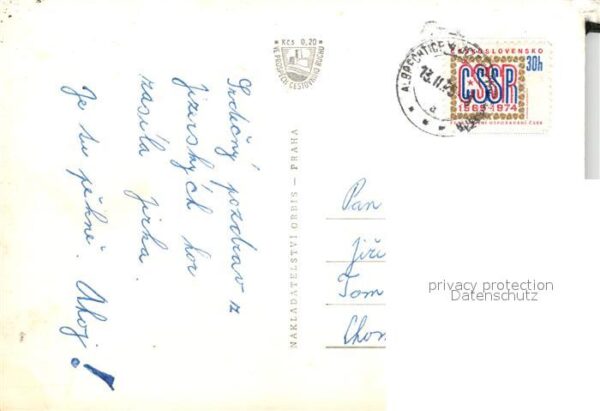 Srdečný pozdrav z
Jizerských hor
zasílá Jirka.
Je tu pěkně. Ahoj!
Kčs 0,20
VE PROSPĚCH CESTOVNÍHO RUCHU
NAKLADATELSTVÍ ORBIS – PRAHA
ALBRECHTICE V
13.II.75
a
ČESKOSLOVENSKO
30h
ČSSR
1969-1974
Pan
Jiří
Tom
Chom
privacy protection
Datenschutz